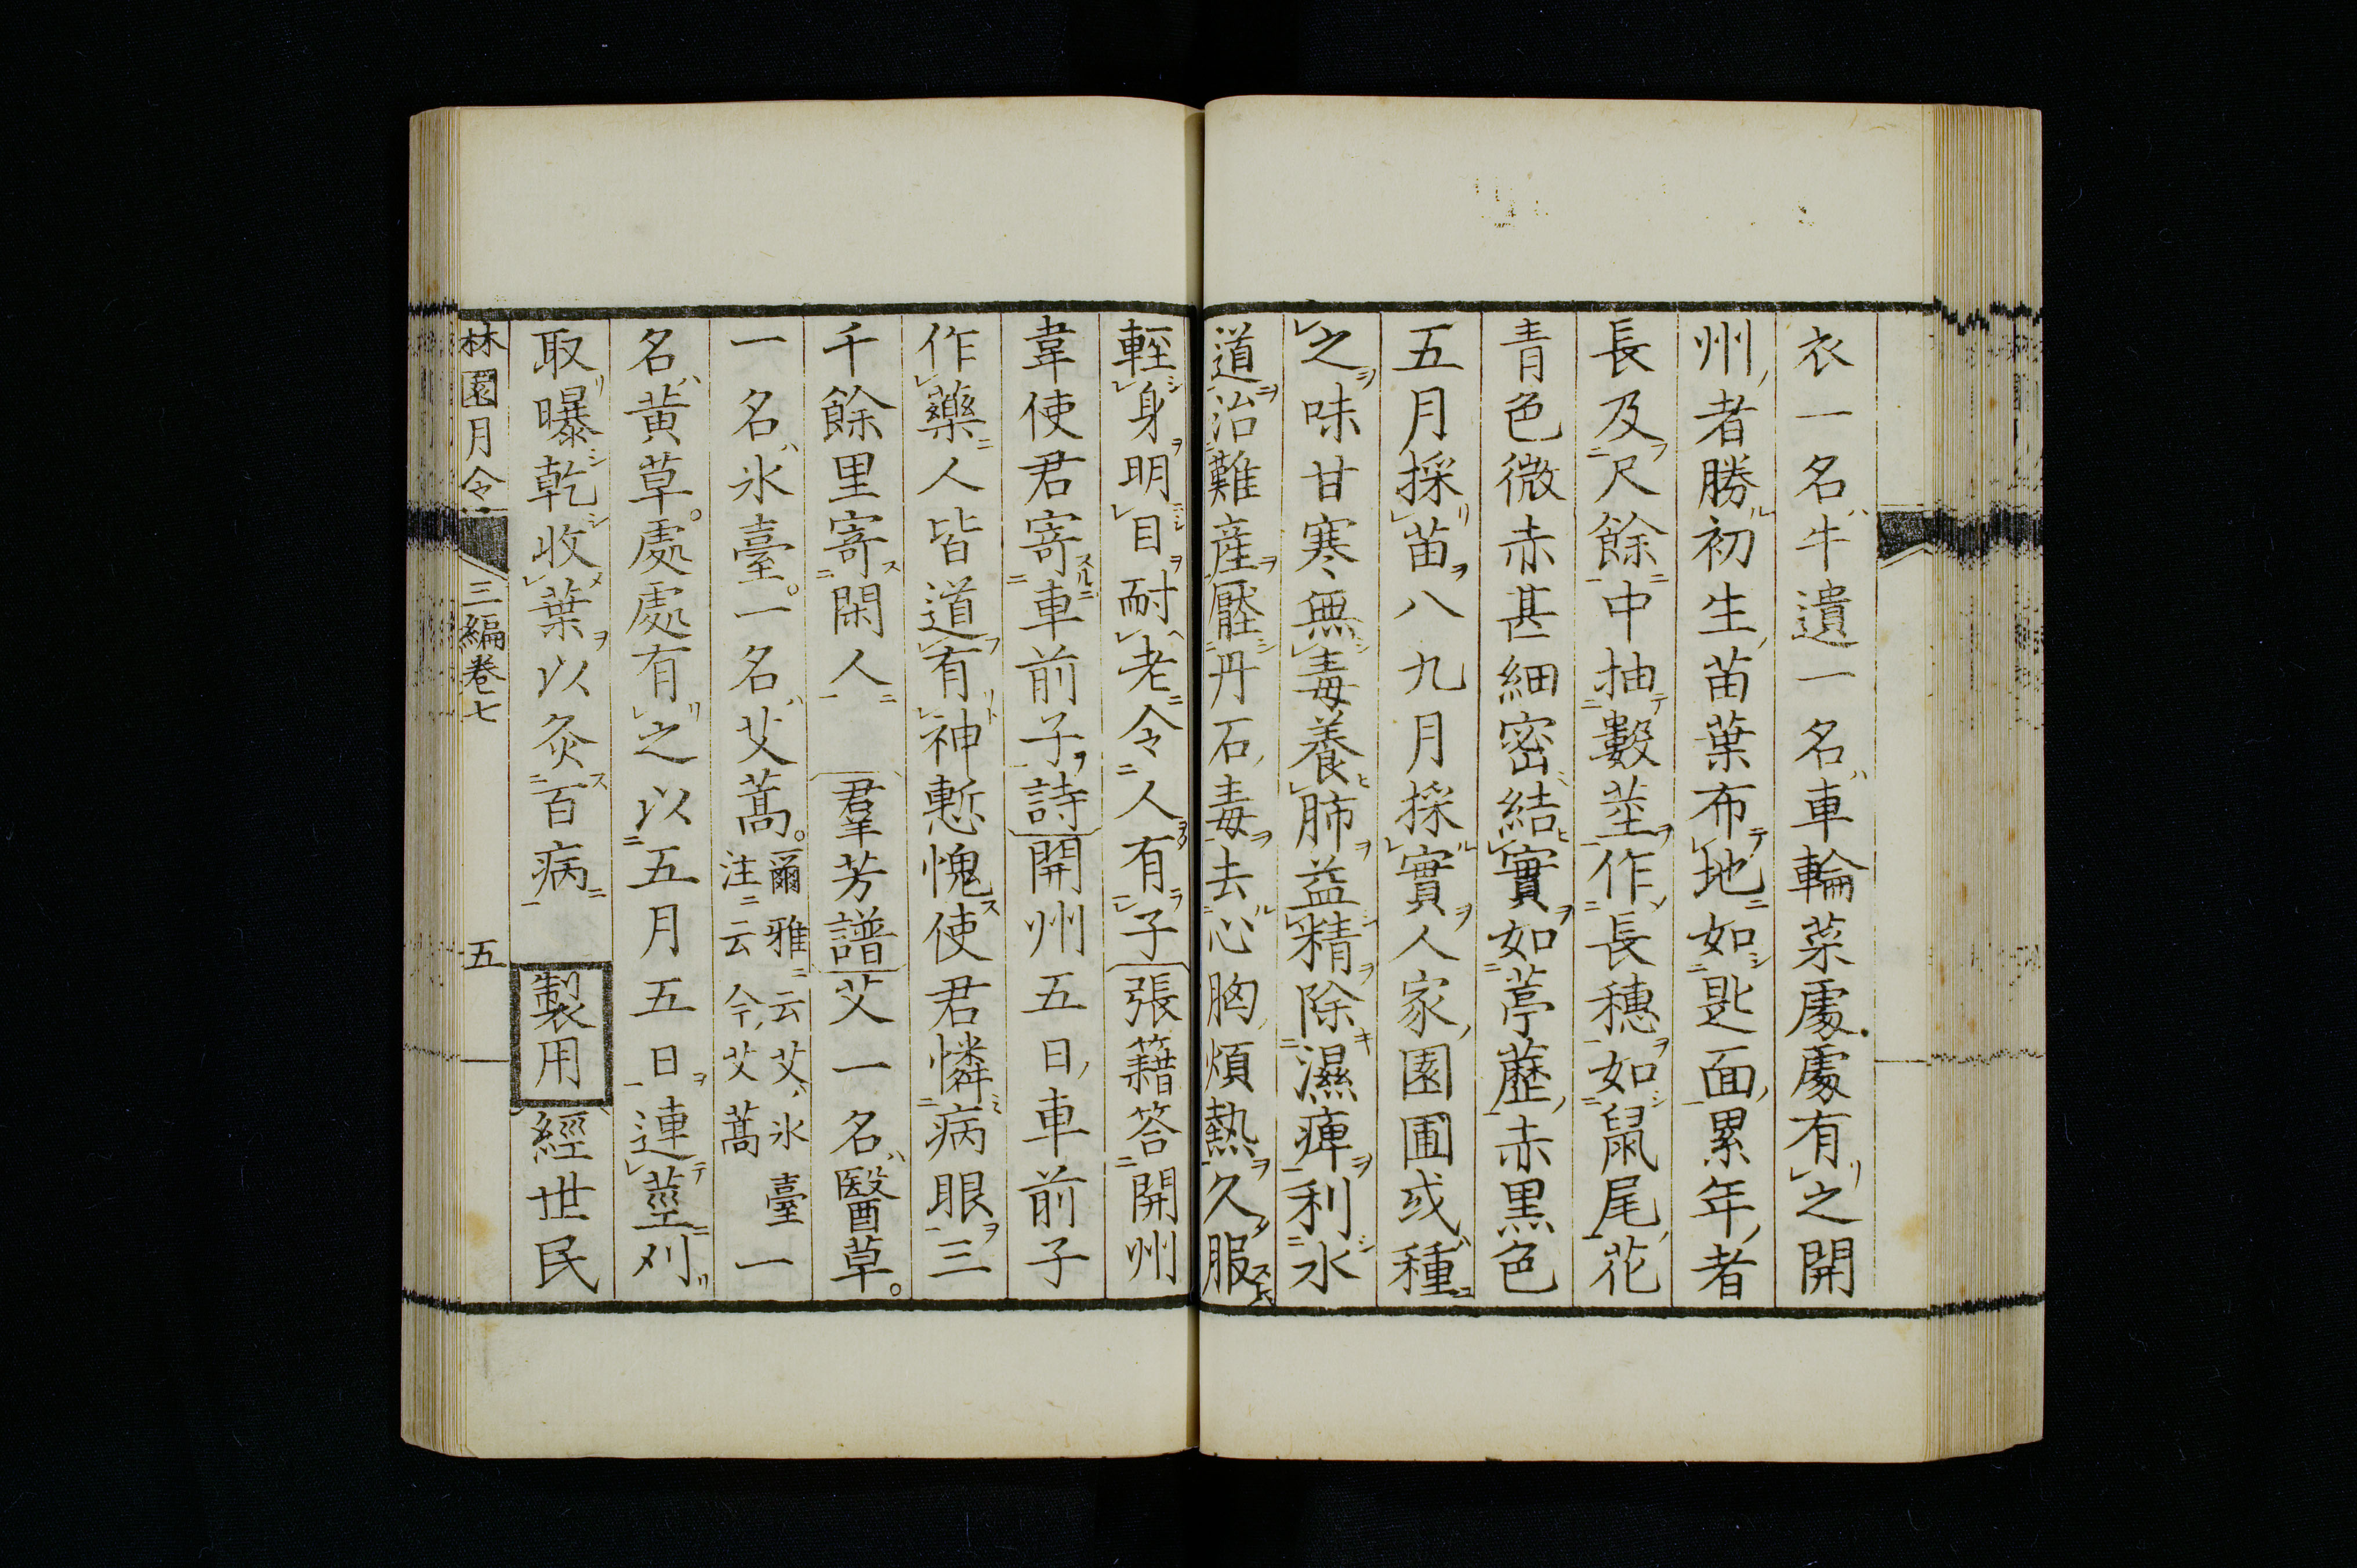 衣一名牛遺一名車輪菜處處有之開
州者勝初生苗葉布地如匙面累年者
長及尺餘中抽數莖作長穗如鼠尾花
青色微赤甚細密結實如葶藶赤黒色
五月採苗八九月採實人家園圃或種
之味甘寒無毒養肺益精除濕痺利水
道治難産壓丹石毒去心胸煩熱久服
輕身明目耐老令人有子張籍答開州
韋使君寄車前子詩開州五日車前子
作藥人皆道有神慙愧使君憐病眼三
千餘里寄閑人 羣芳譜艾一名醫草。
一名氷臺。一名艾蒿。爾雅云艾氷臺一注云今艾蒿
名黃草。處處有之以五月五日連莖刈
取曝乾收葉以灸百病 製用 經世民
林園月令 三編巻七 五